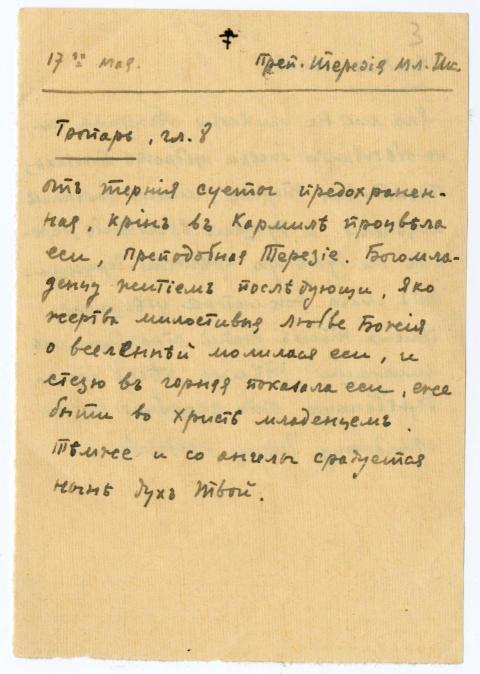 3
17го мая. Преп. Терезія мл. Іис.
Тропарь, гл. 8
отъ тернія суеты предохранен-
ная, кринъ въ Кармилѣ процвѣла
еси, преподобная Терезіе. Богомла-
денцу житіемъ послѣдующи, яко
жертва милостивыя любве Божія
о вселеннѣй молилася еси, и
стезю въ горняя показала еси, еже
быти во Христѣ младенцемъ.
Тѣмже и со ангелы срадуется
нынѣ духъ Твой.